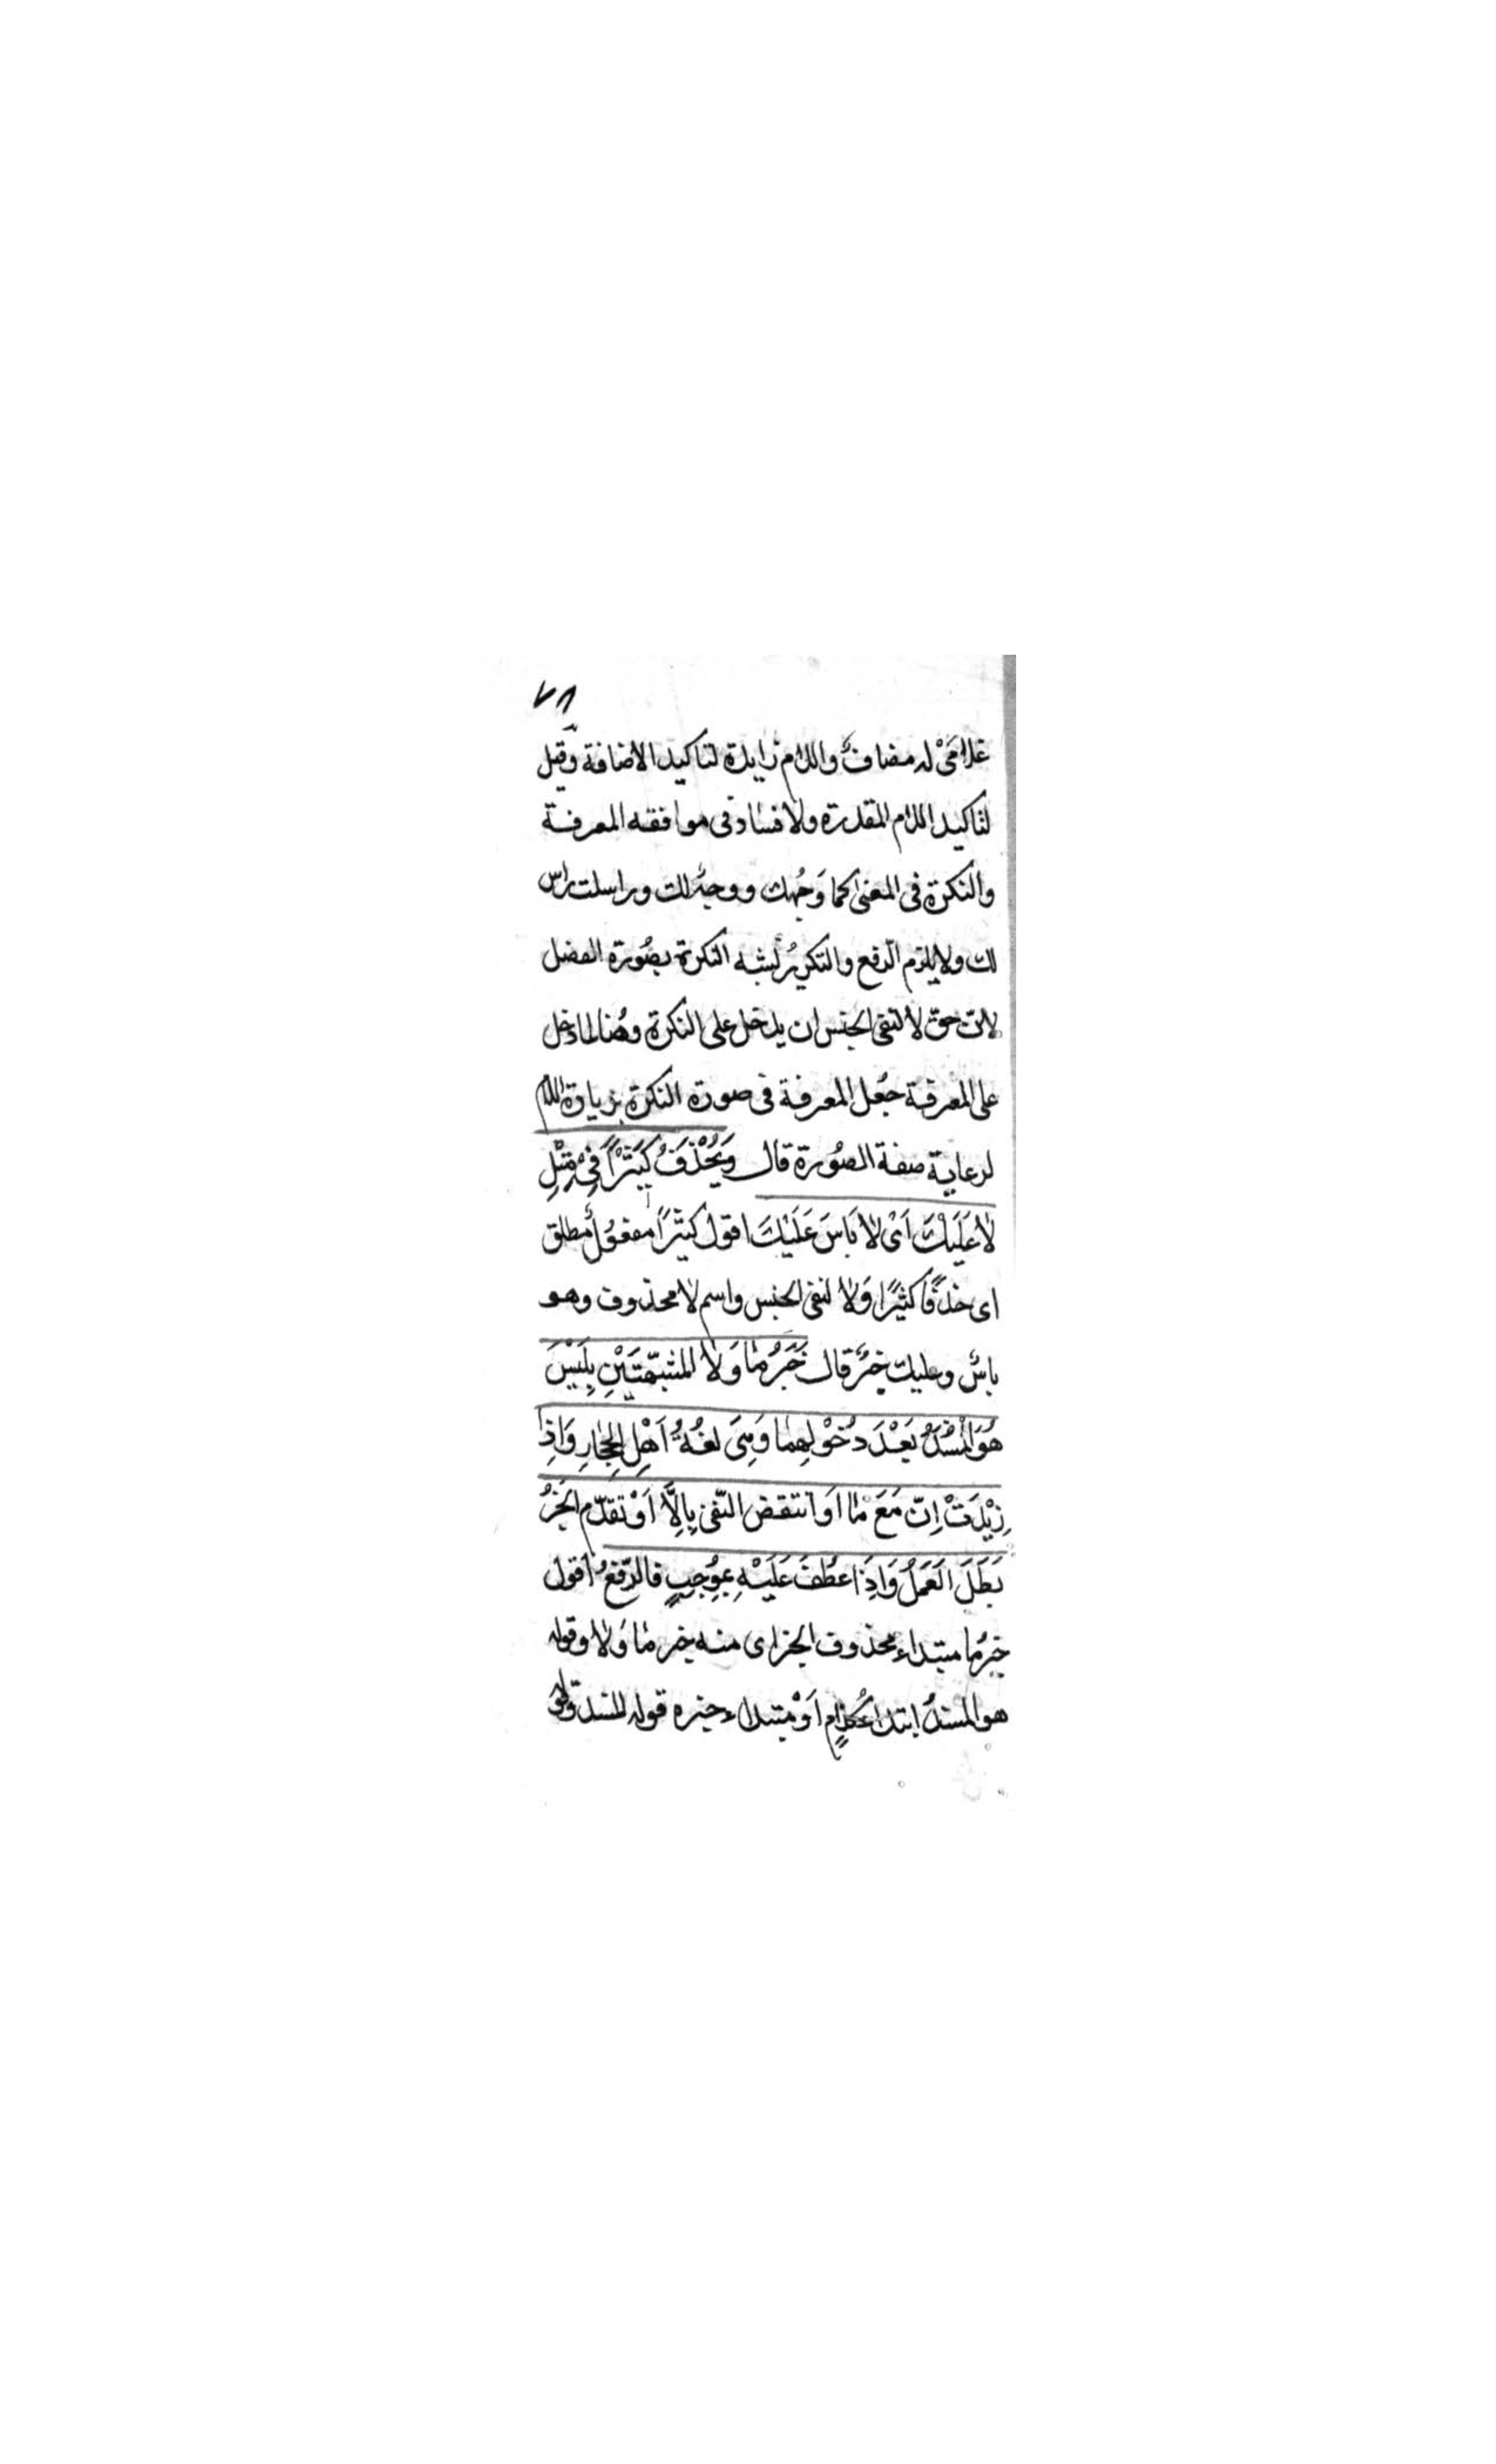 ٧٨
غلامَىْ له مضافٌ واللام زايدة لتاكيد الاضافة وقيل
لتاكيد اللام المقدرة ولا فساد فى موافقه المعرفة
والنكرة فى المعنى كما وَجُهك ووجهٌ لك وراسك راس
لك ولا يلزم الرفع والتكريرُ لشبه النكرة بصُورة الفضل
لانّ حق لا لنفى الجنس ان يدخل على النكرة وهُنا لما دخل
على المعرفة جعُل المعرفة فى صورة النكرة بزيادة اللام
لرعاية صفة الصُورة قال وَيُحْذَفُ كَثِيْرًا فِىْ مِثْلِ
لاٰ عَلَيْكَ اَىْ لاٰ بَاسَ عَلَيْكَ اقول كَثِيْرًا مفعُولٌ مطلق
اى حذفًا كثيرًا وَلاٰ لنفى الجنس واسم لاٰ محذوف وهو
باسٌ وعليك خبرٌ قال خَبَرُ ماٰ وَلاٰ المشَبَّهَتَيْنِ بِلَيْسَ
هُوَ الْمُسْنَدُ بَعْدَ دُخُوْلِهِماٰ وَهِىَ لغُةُ اَهْلِ الحِجٰازِ وَاِذاٰ
زِيْدَتْ اِنْ مَعَ ماٰ اَوانتقض النّفى بِاِلاَّ اَوْ تقدّم الخبرُ
بَطَلَ الَعَمَلُ وَاِذَا عُطِفَ عَلَيْهِ بِمُوجِبٍ فالرّفعُ اقول
خبرُما مبتداء محذوف الخبر اى منه خبر ماٰ وَلاٰ وقوله
هو المسندُ ابتداءُ كلامٍ اَوْ مبتداء خبره قوله المسند